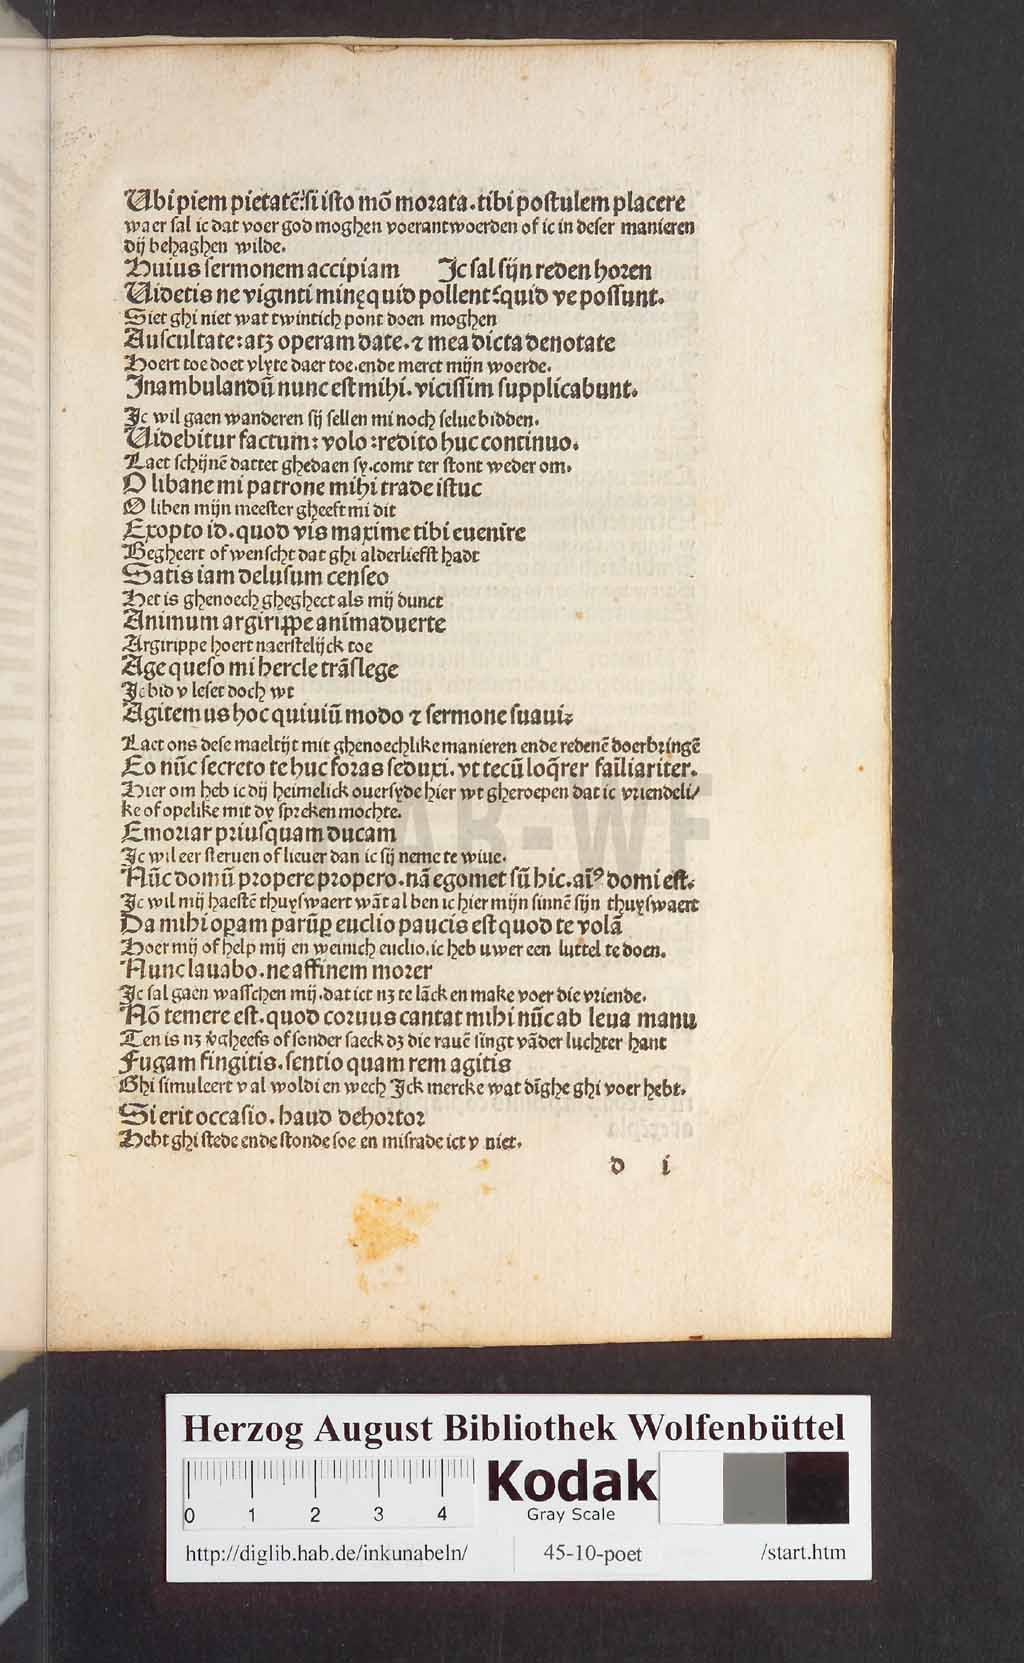 Ubi piem pietatē:si isto mō morata.tibi postulem placere
waer sal ic dat voer god moghen voerantwoerden of ic in deser manieren
dij behaghen wilde.
Huius sermonem accipiam Jc sal sijn reden horen
Uidetis ne viginti minę quid pollent:quid ve possunt.
Siet ghi niet wat twintich pont doen moghen
Auscultate:atꝫ operam date.⁊ mea dicta denotate
Hoert toe doet vlyte daer toe.ende merct mijn woerde.
Inambulandū nunc est mihi.vicissim supplicabunt.
Jc wil gaen wanderen sij sellen mi noch selue bidden.
Uidebitur factum:volo:redito huc continuo.
Laet schijnē dattet ghedaen sy.comt ter stont weder om.
O libane mi patrone mihi trade istuc
O liben mijn meester gheeft mi dit
Exopto id.quod vis maxime tibi euenire
Begheert of wenscht dat ghi alderliefst hadt
Satis iam delusum censeo
Het is ghenoech gheghect als mij dunct
Animum argirippe animaduerte
Argirippe hoert naerstelijck toe
Age queso mi hercle trāslege
Jc bid v leset doch wt
Agitemus hoc quiuiū modo ⁊ sermone suaui⁊
Laet ons dese maeltijt mit ghenoechlike manieren ende redenē doerbringē
Eo nūc secreto te huc foras seduxi.vt tecū loq̄rer familiariter.
Hier om heb ic dij heimelick ouersyde hier wt gheroepen dat ic vriendeli/
ke of opelike mit dy spreken mochte.
Emoriar priusquam ducam
Jc wil eer steruen of lieuer dan ic sij neme te wiue.
Nūc domū propere propero.nā egomet sū hic.aīꝰ domi est.
Jc wil mij haestē thuyswaert wāt al ben ic hier mijn sinnē sijn thuyswaert
Da mihi oꝑam parūꝑ euclio paucis est quod te volā
Hoer mij of help mij en weinich euclio.ic heb uwer een luttel te doen.
Nunc lauabo.ne affinem morer
Jc sal gaen wasschen mij.dat ict nꝫ te lāck en make voer die vriende.
Nō temere est.quod coruus cantat mihi nūc ab leua manu
Ten is nꝫ v̄gheefs of sonder saeck dꝫ die rauē singt vāder luchter hant
Fugam fingitis.sentio quam rem agitis
Ghi simuleert v al woldi en wech Jck mercke wat dīghe ghi voer hebt.
Si erit occasio.haud dehortor
Hebt ghi stede ende stonde soe en misrade ict v niet.
d i
HAB-WF
Herzog August Bibliothek Wolfenbüttel
0 1 2 3 4
Kodak
Gray Scale
http://diglib.hab.de/inkunabeln/ 45-10-poet /start.htm